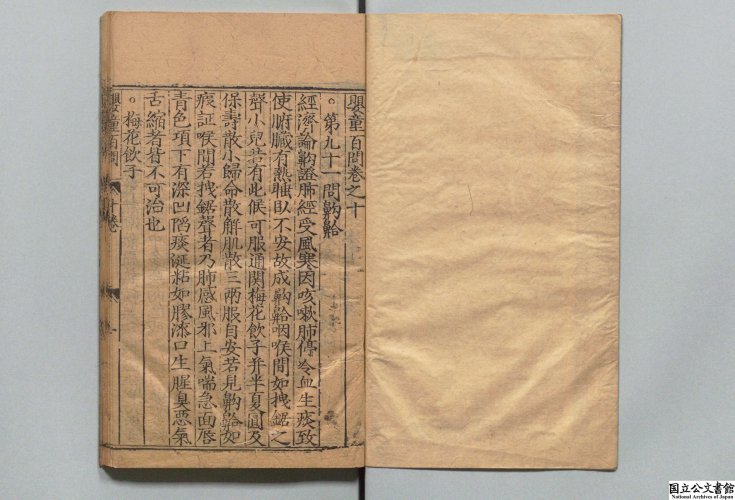 嬰童百問卷之十
。第九十一問齁䶎
經濟論齁證肺經受風寒因咳嗽肺停冷血生痰致
使腑臟有熱睡臥不安故成齁䶎咽喉間如拽鋸之
聲小兒若有此候可服通関梅花飲子并半夏圓及
保壽散小歸命散解肌散三兩服自安若見齁䶎如
痰証喉間若拽鋸聲者乃肺感風邪上氣喘急面唇
青色項下有深凹陷痰涎粘如膠漆口生腥臭惡氣
舌縮者皆不可治也
。梅花飲子
嬰童百問 十卷
国立公文書館
National Archives of Japan